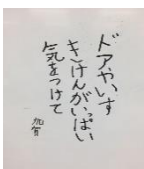 ドアやいす
きけんがいっぱい
気をつけて